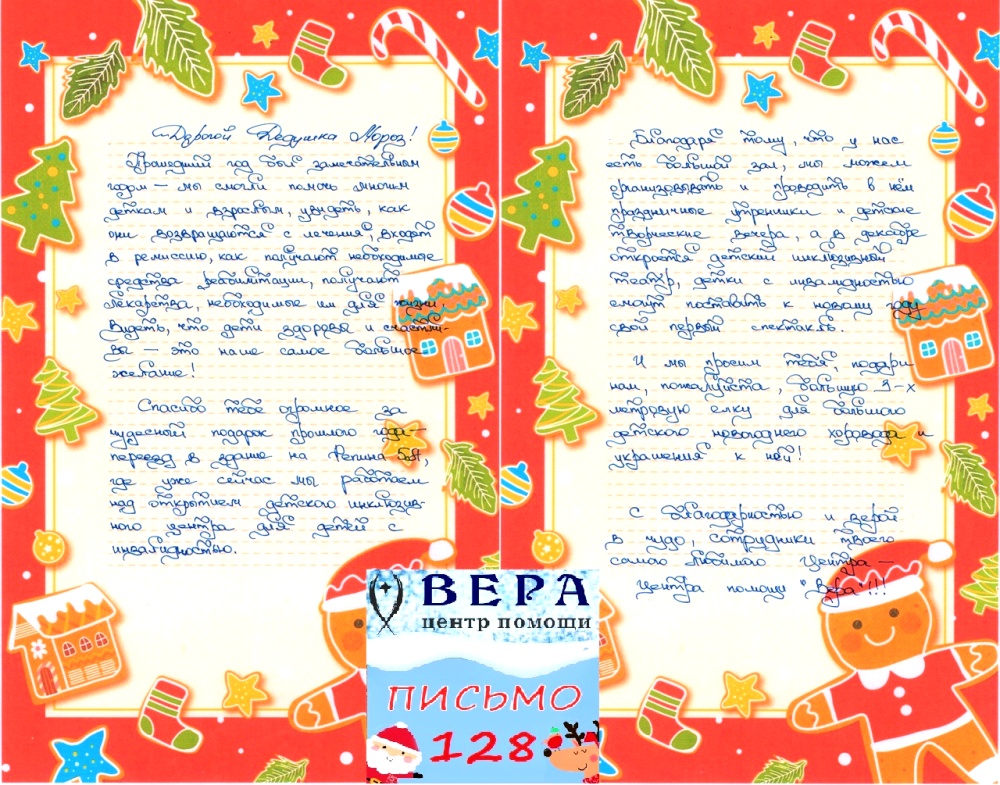 Дорогой Дедушка Мороз!
Прошедший год был замечательным
годом — мы смогли помочь многим
деткам и взрослым, увидеть, как
они возвращаются с лечения, входят
в ремиссию, как получают необходимые
средства реабилитации, получают
лекарства, необходимые им для жизни.
Видеть, что дети здоровы и счастли-
вы — это наше самое большое
желание!
Спасибо тебе огромное за
чудесный подарок прошлого года —
переезд в здание на Репина
где уже сейчас мы работаем
над открытием детского инклюзив-
ного центра для детей с
инвалидностью.
Благодаря тому, что у нас
есть большой зал, мы можем
организовывать и проводить в нём
праздничные утренники и детские
творческие вечера, а в декабре
откроется детский инклюзивной
театр, детки с инвалидностью
смогут поставить к новому году
свой первый спектакль.
И мы просим тебя, подари
нам, пожалуйста, большую 3-х
метровую елку для большого
детского новогоднего хоровода и
украшения к ней!
С благодарностью и верой
в чудо, сотрудники твоего
самого любимого Центра —
Центра помощи "Вера"!!!
ВЕРА
центр помощи
ПИСЬМО
128